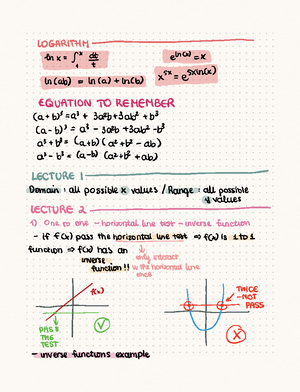 LOGARITHM
ln x = ∫₁ˣ dt/t
e^ln(x) = x
ln(ab) = ln(a) + ln(b)
x^5x = e^5xln(x)
EQUATION TO REMEMBER
(a+b)³ = a³ + 3a²b + 3ab² + b³
(a-b)³ = a³ - 3a²b + 3ab² - b³
a³ + b³ = (a+b)(a² + b² - ab)
a³ - b³ = (a-b)(a² + b² + ab)
LECTURE 1
Domain : all possible x values / Range : all possible
y values
LECTURE 2
1) One to one - horizontal line test - inverse function
- if f(x) pass the horizontal line test ⇒ f(x) is 1 to 1
function ⇒ f(x) has an
inverse
function!!
only intersect
w the horizontal line
once
f(x)
PASS
THE
TEST
V
TWICE
-NOT
PASS
X
- inverse functions example